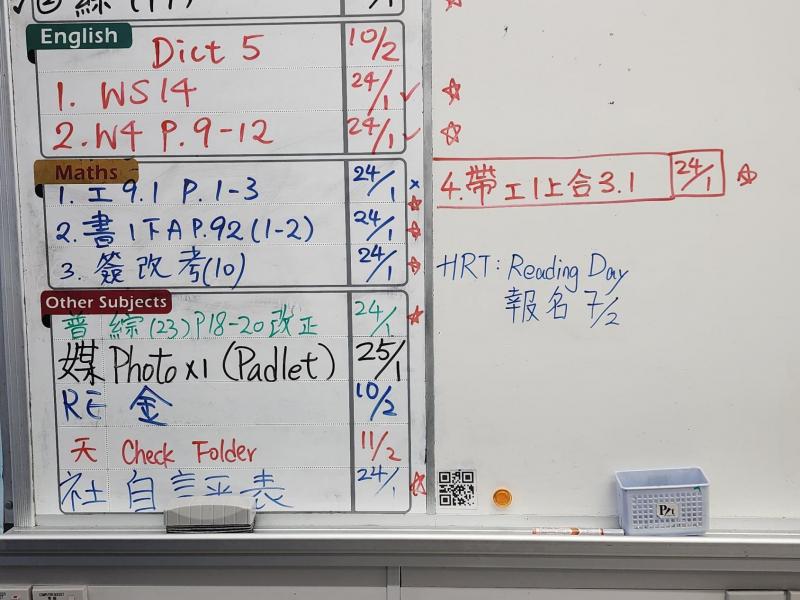 綜(17) /1
English
Dict 5 10/2
1. WS14 24/1 ✓ ☆
2. W4 P.9-12 24/1 ✓ ☆
Maths
1. 工 9.1 P.1-3 24/1 x ☆
2. 書 1下A P.92 (1-2) 24/1 ☆
3. 簽改考(10) 24/1 ☆
Other Subjects
普 綜(23) P18-20 改正 24/1 ☆
媒 Photo x1 (Padlet) 25/1
RE 金 10/2
天 Check Folder 11/2
社 自評表 24/1 ☆
4. 帶工1上合3.1 24/1 ☆
HRT: Reading Day
報名 7/2